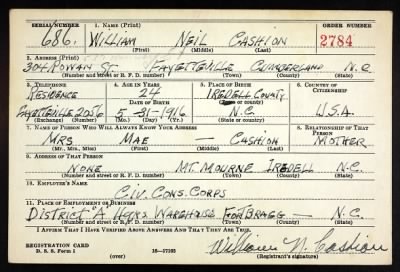 SERIAL NUMBER 1. NAME (Print) ORDER NUMBER
686. WILLIAM NEIL CASHION 2784
(First) (Middle) (Last)
2. ADDRESS (Print)
304 ROWAN ST. FAYETTEVILLE CUMBERLAND N.C.
(Number and street or R. F. D. number) (Town) (County) (State)
3. TELEPHONE 4. AGE IN YEARS 5. PLACE OF BIRTH 6. COUNTRY OF CITIZENSHIP
RESIDENCE 24 IREDELL COUNTY
DATE OF BIRTH
FAYETTEVILLE 2056 5-31-1916 N.C. U.S.A.
(Exchange) (Number) (Mo.) (Day) (Yr.) (State or country)
7. NAME OF PERSON WHO WILL ALWAYS KNOW YOUR ADDRESS 8. RELATIONSHIP OF THAT PERSON
MRS MAE — CASHION MOTHER
(Mr., Mrs., Miss) (First) (Middle) (Last)
9. ADDRESS OF THAT PERSON
NONE MT. MOURNE IREDELL N.C.
(Number and street or R. F. D. number) (Town) (County) (State)
10. EMPLOYER'S NAME
CIV. CONS. CORPS
11. PLACE OF EMPLOYMENT OR BUSINESS
DISTRICT "A" HQRS WAREHOUSE FORT BRAGG — N.C.
(Number and street or R. F. D. number) (Town) (County) (State)
I AFFIRM THAT I HAVE VERIFIED ABOVE ANSWERS AND THAT THEY ARE TRUE.
REGISTRATION CARD William N. Cashion
D. S. S. Form 1 (over) 16-17105 (Registrant's signature)